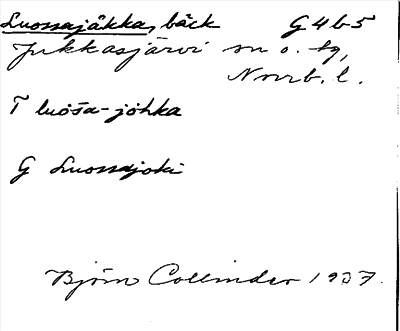 Luossajåkka, bäck G4b5
Jukkasjärvi sn o. tg,
Norrb. l.
T luos̄a-johka
G Luossajoki
Björn Collinder 1937.